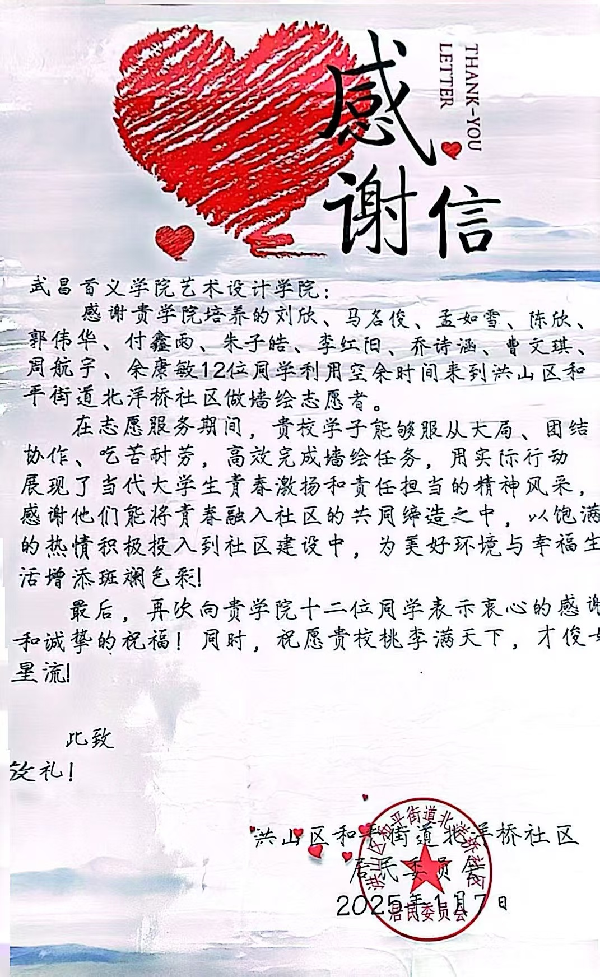 感谢信
THANK-YOU
LETTER
武昌首义学院艺术设计学院：
感谢贵学院培养的刘欣、马名俊、孟如雪、陈欣、
郭伟华、付鑫雨、朱子皓、李红阳、乔诗涵、曹文琪、
周航宇、余康敏12位同学利用空余时间来到洪山区和
平街道北洋桥社区做墙绘志愿者。
在志愿服务期间，贵校学子能够服从大局、团结
协作、吃苦耐劳，高效完成墙绘任务，用实际行动
展现了当代大学生青春激扬和责任担当的精神风采，
感谢他们能将青春融入社区的共同缔造之中，以饱满
的热情积极投入到社区建设中，为美好环境与幸福生
活增添斑斓色彩！
最后，再次向贵学院十二位同学表示衷心的感谢
和诚挚的祝福！同时，祝愿贵校桃李满天下，才俊
星流！
此致
敬礼！
洪山区和平街道北洋桥社区
居民委员会
2025年1月7日
洪山区和平街道北洋桥社区
居民委员会